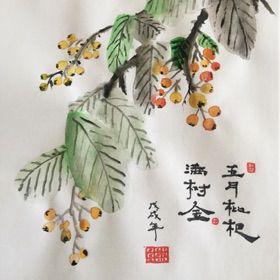 五月枇杷
满树金
戊戌年